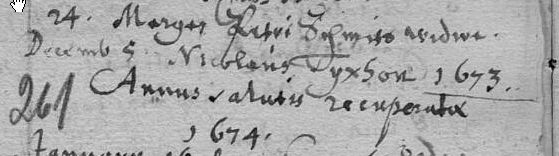 24. Merges Petri Schmits widwe.
Decemb 5. Nicolaus Tyxhon 1673.
261 Annus salutis recuperatæ
1674.
January